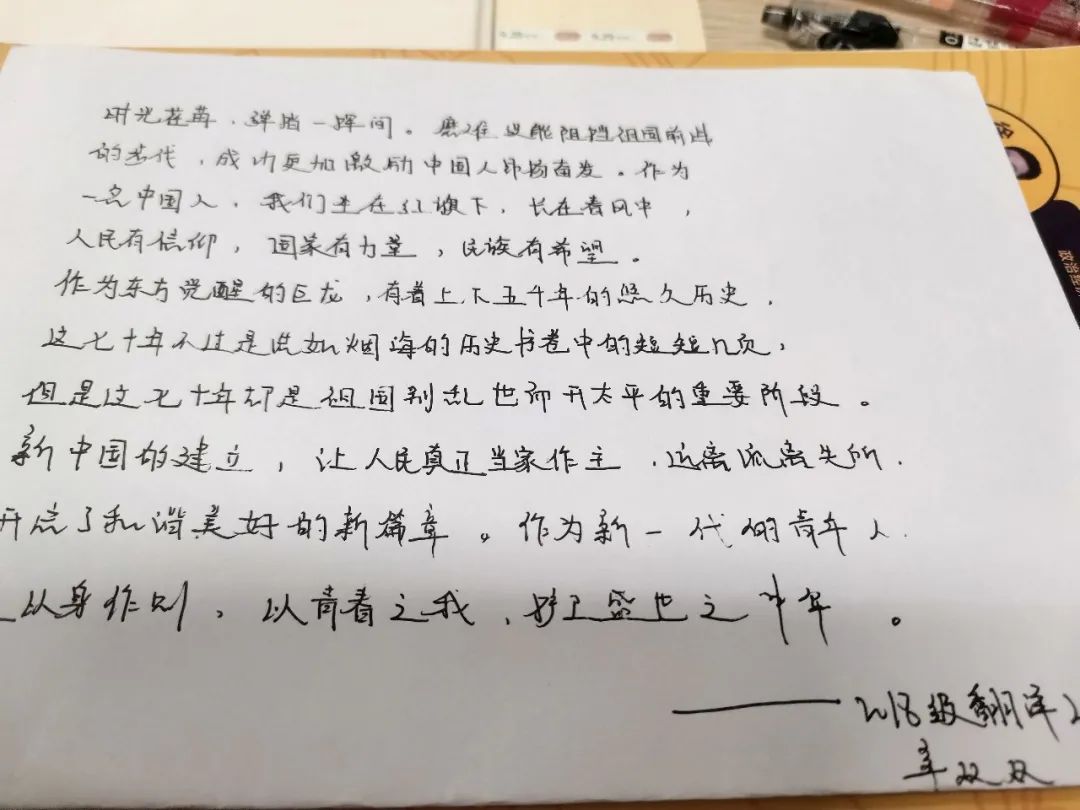 时光荏苒，弹指一挥间。磨难没能阻挡祖国前进
的步伐，成功更加激励中国人昂扬奋发。作为
一名中国人，我们生在红旗下，长在春风中，
人民有信仰，国家有力量，民族有希望。
作为东方觉醒的巨龙，有着上下五千年的悠久历史，
这七十年不过是浩如烟海的历史书卷中的短短几页，
但是这七十年却是祖国别乱世而开太平的重要阶段。
新中国的建立，让人民真正当家作主，远离流离失所，
开启了和谐美好的新篇章。作为新一代的青年人，
以身作则，以青春之我，护卫盛世之中华。
——2018级翻译
双双
政治经